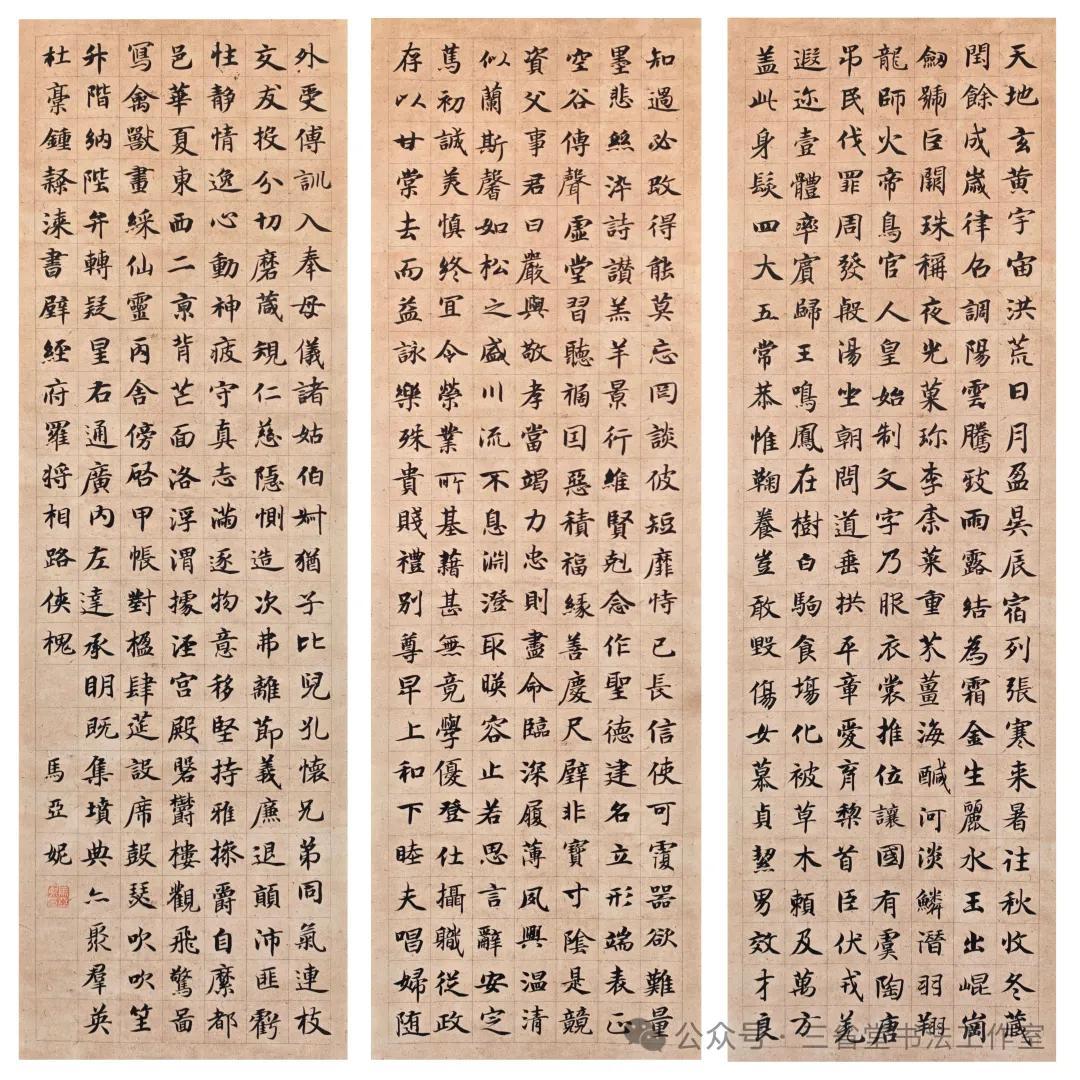 天地玄黃宇宙洪荒日月盈昃辰宿列張寒来暑往秋收冬藏
閏餘成歲律呂調陽雲騰致雨露結為霜金生麗水玉出崐崗
劔號巨闕珠稱夜光菓珍李柰菜重芥薑海鹹河淡鱗潛羽翔
龍師火帝鳥官人皇始制文字乃服衣裳推位讓國有虞陶唐
吊民伐罪周發殷湯坐朝問道垂拱平章愛育黎首臣伏戎羌
遐迩壹體率賓歸王鳴鳳在樹白駒食場化被草木賴及萬方
盖此身髮四大五常恭惟鞠養豈敢毀傷女慕貞絜男效才良
知過必改得能莫忘罔談彼短靡恃己長信使可覆器欲難量
墨悲絲染詩讚羔羊景行維賢剋念作聖德建名立形端表正
空谷傳聲虛堂習聽禍因惡積福緣善慶尺璧非寶寸陰是競
資父事君曰嚴與敬孝當竭力忠則盡命臨深履薄夙興温清
似蘭斯馨如松之盛川流不息淵澄取暎容止若思言辭安定
篤初誠美慎終宜令榮業所基藉甚無竟學優登仕攝職從政
存以甘棠去而益詠樂殊貴賤禮別尊卑上和下睦夫唱婦隨
外受傅訓入奉母儀諸姑伯叔猶子比兒孔懷兄弟同氣連枝
交友投分切磨箴規仁慈隱惻造次弗離節義廉退顛沛匪虧
性静情逸心動神疲守真志滿逐物意移堅持雅操爵自縻都
邑華夏東西二京背芒面洛浮渭據涇宮殿磐鬱樓觀飛驚啚
寫禽獸畫綵仙靈丙舍傍啟甲帳對楹肆筵設席鼓瑟吹吹笙
升階納陛弁轉疑星右通廣內左達承明既集墳典亦聚羣英
杜稾鍾隸漆書壁經府羅將相路俠槐
馬亞妮
公众号·三省堂书法工作室